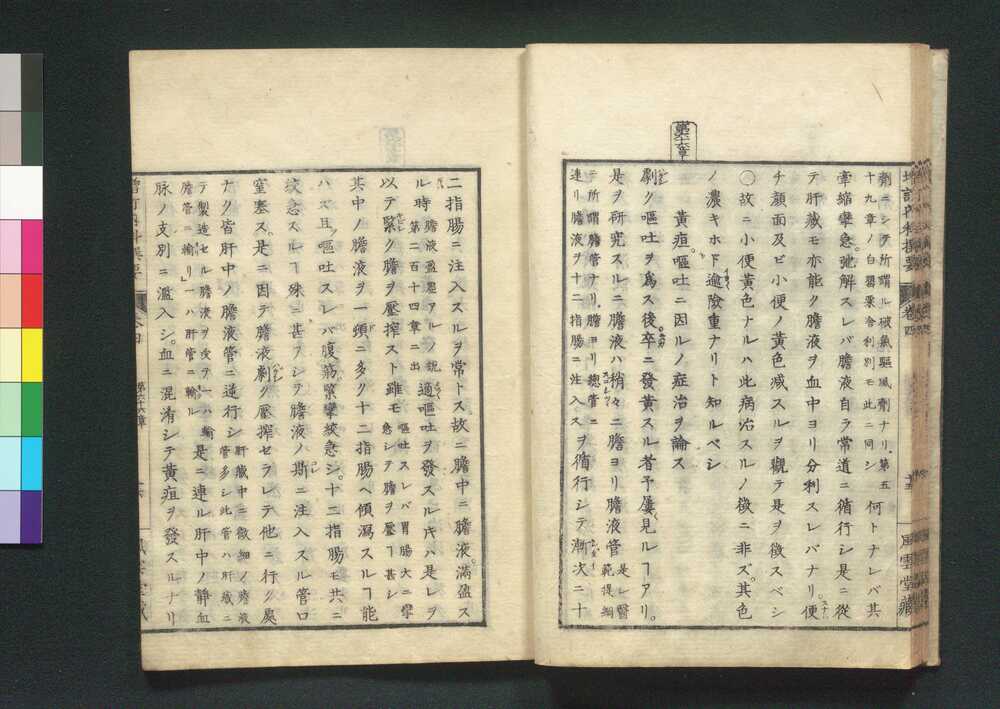 第六十六章
劑ニシテ所謂ル破氣驅風劑ナリ、第五
十九章ノ白罌粟舎利別モ此ニ同シ
何トナレバ其
牽縮攣急。弛解スレバ膽液自ラ常道ニ循行シ是ニ從
テ肝蔵モ亦能ク膽液ヲ血中ヨリ分利スレバナリ。便
チ顔面及ビ小便ノ黄色減スルヲ觀テ是ヲ徴スベシ
〇故ニ小便黄色ナルハ此病治スルノ徴ニ非ズ。其色
ノ濃キホド逾險重ナリト知ルベシ
黄疸。嘔吐ニ因ルノ症治ヲ論ス
劇ク嘔吐ヲ爲ス後。卒ニ發黄スル者予屢見ルヿアリ。
是ヲ研究スルニ膽液ハ稍々ニ膽ヨリ膽液管
是レ醫
範提綱
テ所謂膽管ナリ、膽ヨリ總管ニ
連リ膽液ヲ十二指腸ニ注入ス
ヲ循行シテ漸次ニ十
増訂内科撰要
卷四
十五
風雲堂藏
二指腸ニ注入スルヲ常トス故ニ膽中ニ膽液。滿盈ス
ル時
膽液盈溢アルノ説
第二百十四章ニ出
適嘔吐ヲ發スル𪜈ハ是レヲ
以テ緊ク膽ヲ壓搾スト雖モ
嘔吐スレバ胃腸大ニ攣
急シテ膽ヲ壓ヿ甚シ
其中ノ膽液ヲ一頓ニ多ク十二指腸ヘ傾瀉スルヿ能
ハズ且ツ嘔吐スレバ腹蕩繁攣絞急シ。十二指腸モ共ニ
絞急スルヿ殊ニ甚ヲシテ膽液ノ斯ニ注入スル管口
窒塞ス。是ニ因テ膽液劇ク壓搾セラレテ他ニ行ク處
ナク皆肝中ノ膽液管ニ逆行シ
肝蔵中ニ微細ノ膽液
管多シ此管ハ肝蔵ニ
テ製造セル膽液ヲ受テ一ハ輸
膽管ニ輸リ一ハ肝管ニ輸ル
是ニ連ル肝中ノ靜血
脉ノ支別ニ濫入シ。血ニ混淆シテ黄疸ヲ發スルナリ